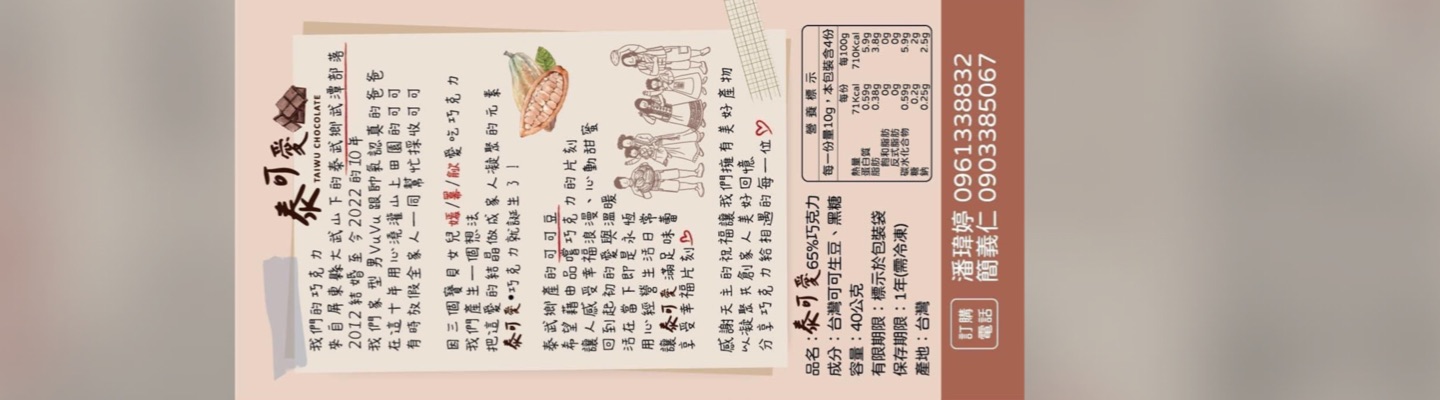 泰可愛
TAIWU CHOCOLATE
我們的巧克力
來自屏東縣大武山下的泰武鄉武潭部落
2012結婚至今2022的10年
我們家型男VuVu跟帥氣認真的爸爸
在這十年用心澆灌山上田園的可可
有時放假全家人一同幫忙採收可可
因三個寶貝女兒嫣/蕎/歆愛吃巧克力
我們產生一個想法
把這愛的結晶做成家人凝聚的元素
泰可愛•巧克力就誕生了!
泰武鄉產的可可豆
希望藉由品嚐巧克力的片刻
讓人感受幸福浪漫、心動甜蜜
回到起初的愛與溫暖
活在當下即是永恆
用心經營生活日常
讓泰可愛滿足味蕾
享受幸福片刻
感謝天主的祝福讓我們擁有美好產物
以凝聚共創家人美好回憶
分享巧克力給相遇的每一位
品名:泰可愛65%巧克力
成分:台灣可可生豆、黑糖
容量:40公克
有限期限:標示於包裝袋
保存期限:1年(需冷凍)
產地:台灣
營養標示
每一份量10g,本包裝含4份
每份 每100g
熱量 71Kcal 710Kcal
蛋白質 0.59g 5.9g
脂肪 0.38g 3.8g
飽和脂肪 0g 0g
反式脂肪 0g 0g
碳水化合物 0.59g 5.9g
糖 0.2g 2g
鈉 0.25g 2.5g
訂購電話
潘瑋婷 0961338832
簡義仁 0903385067